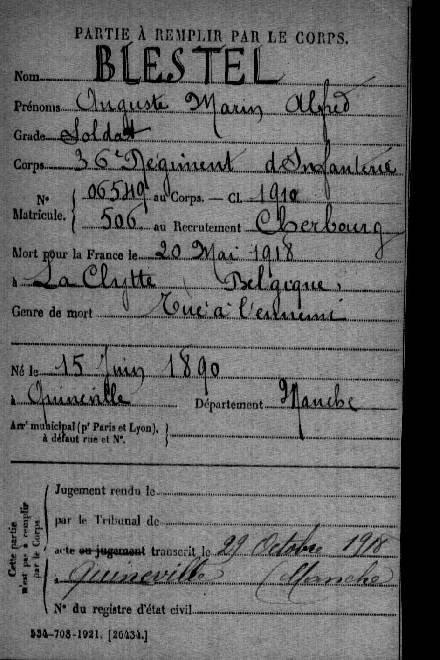 PARTIE À REMPLIR PAR LE CORPS.
Nom BLESTEL
Prénoms Auguste Marin Alfred
Grade Soldat
Corps 36e Régiment d'Infanterie
N° Matricule. { 06549 au Corps. — Cl. 1910
506 au Recrutement Cherbourg
Mort pour la France le 20 Mai 1918
à La Clytte Belgique,
Genre de mort Tué à l'ennemi
Né le 15 Juin 1890
à Quineville Département Manche
Arrt municipal (pr Paris et Lyon), à défaut rue et N°. }
Cette partie n'est pas à remplir par le Corps.
Jugement rendu le
par le Tribunal de
acte ou jugement transcrit le 29 Octobre 1918
à Quineville Manche
N° du registre d'état civil
534-708-1921. [26434.]